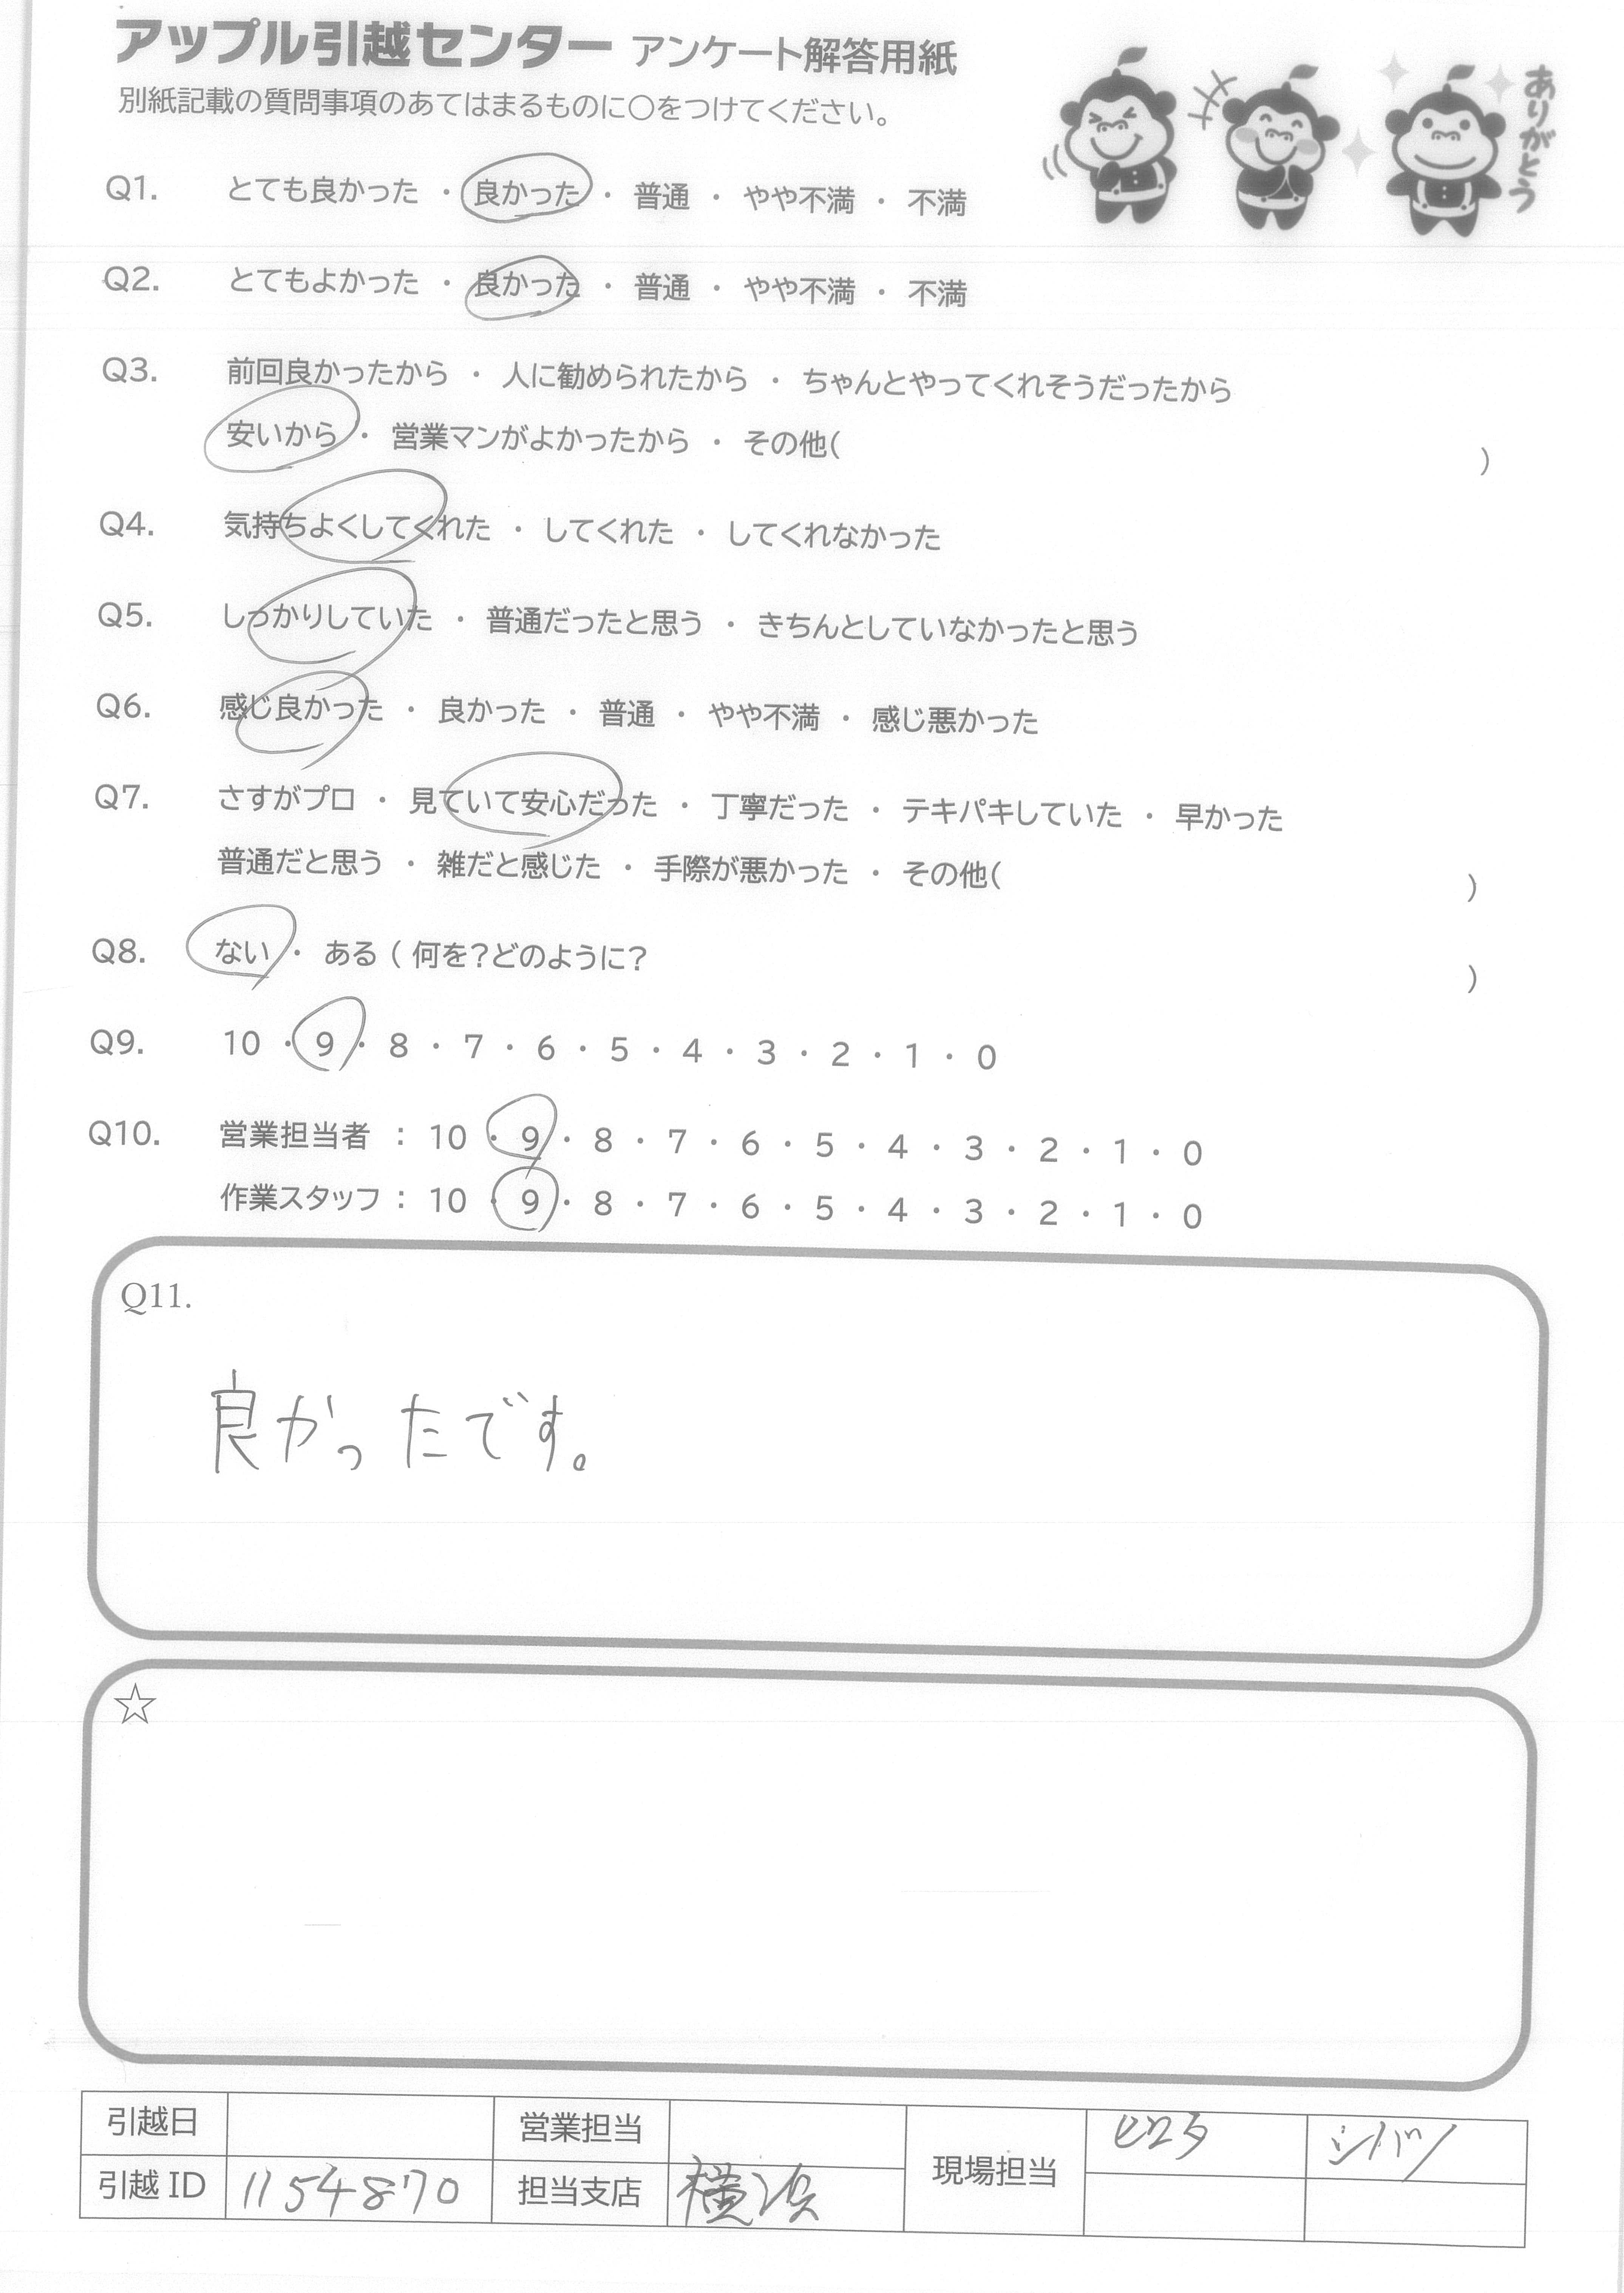 アップル引越センター アンケート解答用紙
別紙記載の質問事項のあてはまるものに○をつけてください。
ありがとう
Q1. とても良かった ・ 良かった ・ 普通 ・ やや不満 ・ 不満
Q2. とてもよかった ・ 良かった ・ 普通 ・ やや不満 ・ 不満
Q3. 前回良かったから ・ 人に勧められたから ・ ちゃんとやってくれそうだったから
安いから ・ 営業マンがよかったから ・ その他( )
Q4. 気持ちよくしてくれた ・ してくれた ・ してくれなかった
Q5. しっかりしていた ・ 普通だったと思う ・ きちんとしていなかったと思う
Q6. 感じ良かった ・ 良かった ・ 普通 ・ やや不満 ・ 感じ悪かった
Q7. さすがプロ ・ 見ていて安心だった ・ 丁寧だった ・ テキパキしていた ・ 早かった
普通だと思う ・ 雑だと感じた ・ 手際が悪かった ・ その他( )
Q8. ない ・ ある ( 何を?どのように? )
Q9. 10 ・ 9 ・ 8 ・ 7 ・ 6 ・ 5 ・ 4 ・ 3 ・ 2 ・ 1 ・ 0
Q10. 営業担当者 : 10 ・ 9 ・ 8 ・ 7 ・ 6 ・ 5 ・ 4 ・ 3 ・ 2 ・ 1 ・ 0
作業スタッフ : 10 ・ 9 ・ 8 ・ 7 ・ 6 ・ 5 ・ 4 ・ 3 ・ 2 ・ 1 ・ 0
Q11.
良かったです。
☆
引越日 営業担当
現場担当
引越 ID 1154870 担当支店 横浜